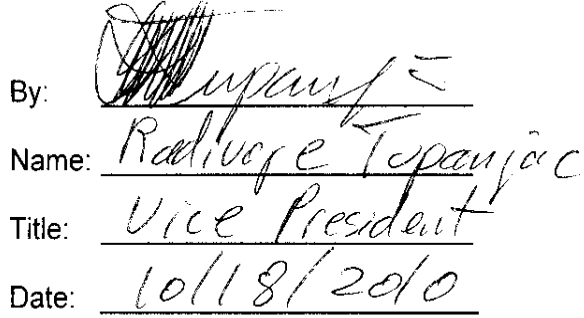 By:
Name: Radivoje Tupanjac
Title: Vice President
Date: 10/18/2010